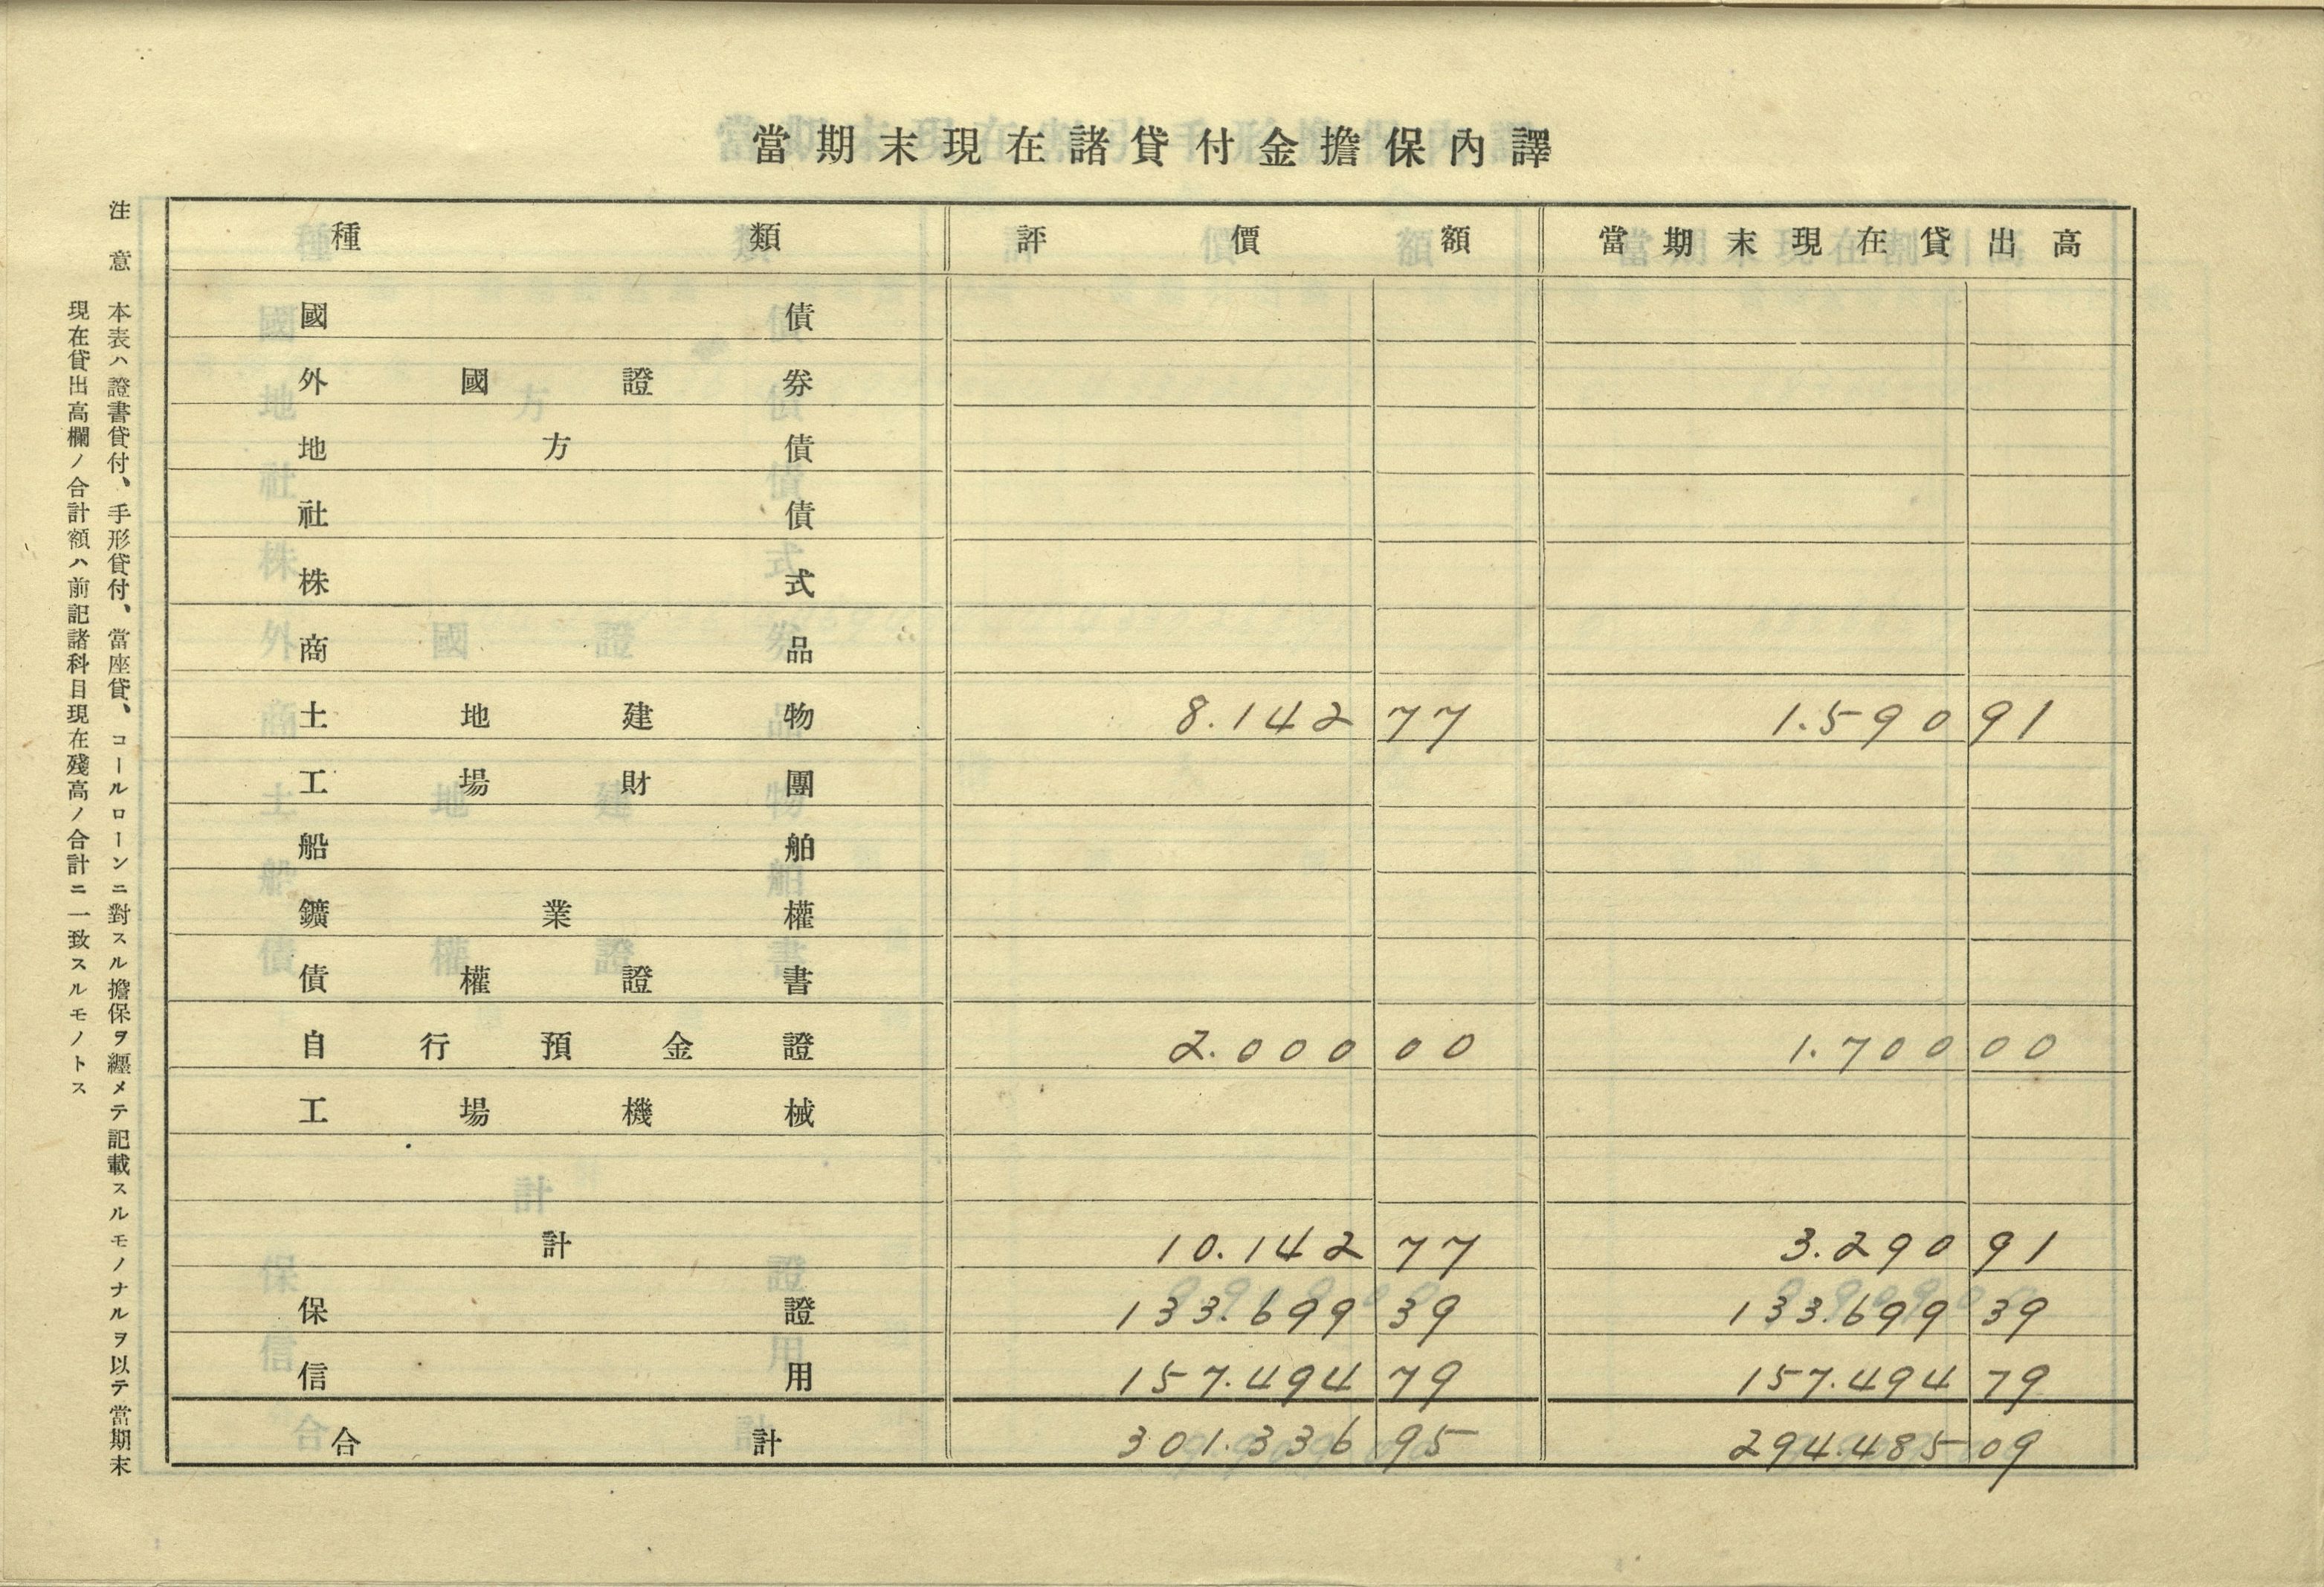 當期末現在諸貸付金擔保內譯
種類 評價額 當期末現在貸出高
國債
外國證券
地方債
社債
株式
商品
土地建物 8.142 77 1.590 91
工場財團
船舶
鑛業權
債權證書
自行預金證 2.000 00 1.700 00
工場機械
計 10.142 77 3.290 91
保證 133.699 39 133.699 39
信用 157.494 79 157.494 79
合計 301.336 95 294.485 09
注意 本表ハ證書貸付、手形貸付、當座貸、コールローンニ對スル擔保ヲ纒メテ記載スルモノナルヲ以テ當期末
現在貸出高欄ノ合計額ハ前記諸科目現在殘高ノ合計ニ一致スルモノトス